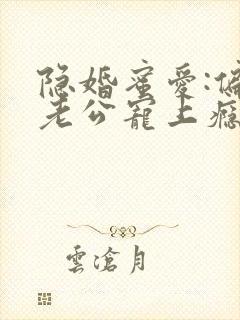 隐婚蜜爱:偏
老公宠上瘾
雲滄月